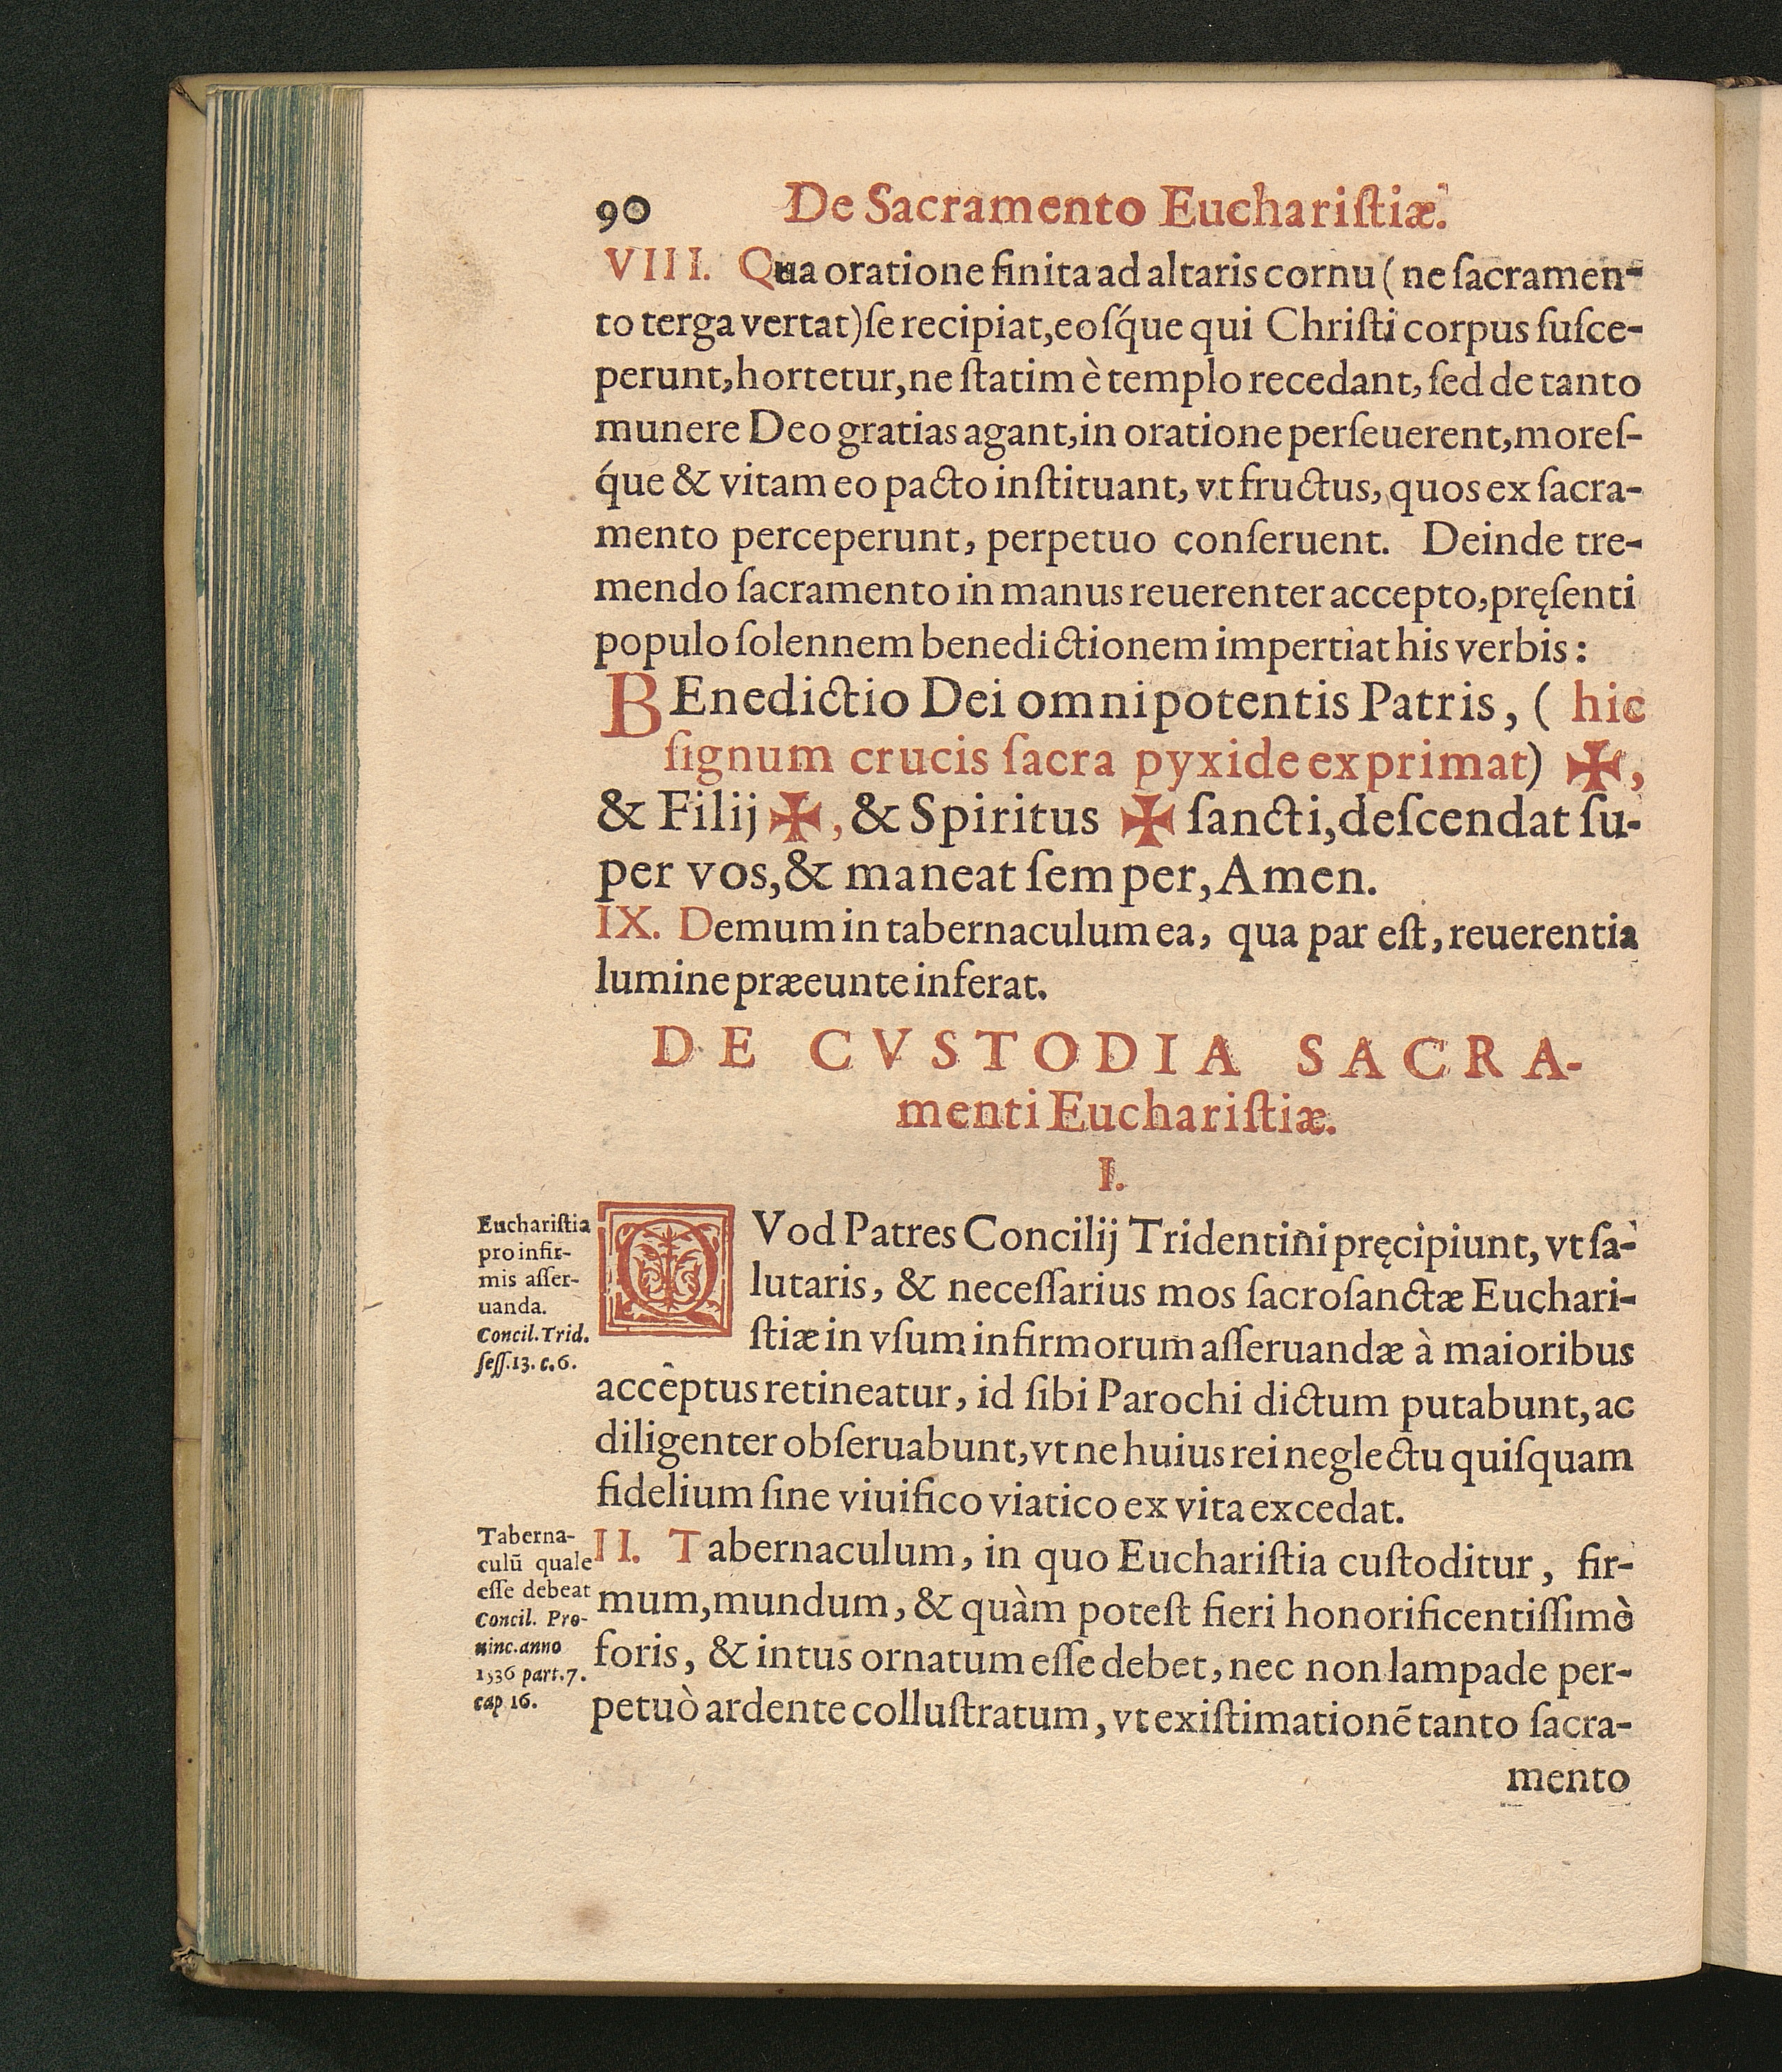 90 De Sacramento Euchariſtiæ.
VIII. Qua oratione finita ad altaris cornu (ne ſacramen-
to terga vertat) ſe recipiat, eoſq́ue qui Chriſti corpus ſuſce-
perunt, hortetur, ne ſtatim è templo recedant, ſed de tanto
munere Deo gratias agant, in oratione perſeuerent, moreſ-
q́ue & vitam eo pacto inſtituant, vt fructus, quos ex ſacra-
mento perceperunt, perpetuo conſeruent. Deinde tre-
mendo ſacramento in manus reuerenter accepto, pręſenti
populo ſolennem benedictionem impertiat his verbis:
BEnedictio Dei omnipotentis Patris, (hic
ſignum crucis ſacra pyxide exprimat) ✠,
& Filij ✠, & Spiritus ✠ ſancti, deſcendat ſu-
per vos, & maneat ſemper, Amen.
IX. Demum in tabernaculum ea, qua par eſt, reuerentia
lumine præeunte inferat.
DE CVSTODIA SACRA-
menti Euchariſtiæ.
I.
Euchariſtia
pro infir-
mis aſſer-
uanda.
Concil. Trid.
ſeſſ. 13. c. 6.
QVod Patres Concilij Tridentini pręcipiunt, vt ſa-
lutaris, & neceſſarius mos ſacroſanctæ Euchari-
ſtiæ in vſum infirmorum aſſeruandæ à maioribus
accêptus retineatur, id ſibi Parochi dictum putabunt, ac
diligenter obſeruabunt, vt ne huius rei neglectu quiſquam
fidelium ſine viuifico viatico ex vita excedat.
Taberna-
culū quale
eſſe debeat
Concil. Pro-
uinc. anno
1536 part. 7.
cap 16.
II. Tabernaculum, in quo Euchariſtia cuſtoditur, fir-
mum, mundum, & quàm poteſt fieri honorificentiſſimè
foris, & intus ornatum eſſe debet, nec non lampade per-
petuò ardente colluſtratum, vt exiſtimationē tanto ſacra-
mento